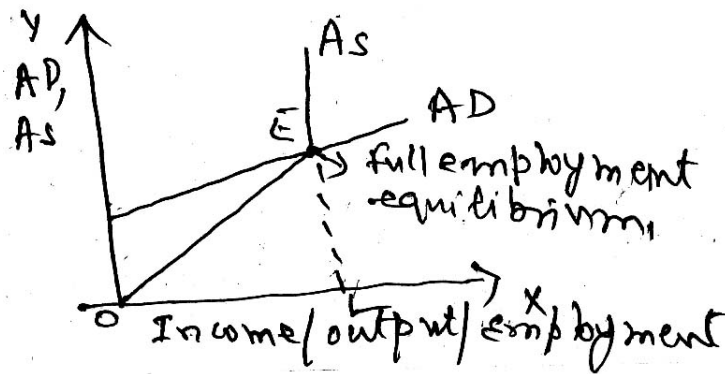 Y
AD,
As
As
E
AD
full employment
equilibrium,
O
L
X
Income/output/employment